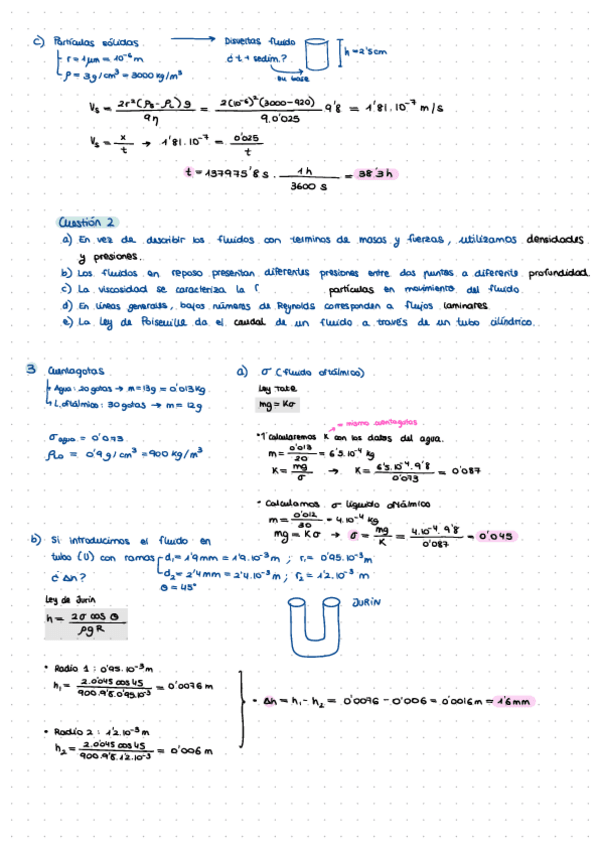 c) Partículas sólidas → Disueltas fluido
r = 1 μm = 10⁻⁶ m
ρ = 3g/cm³ = 3000 kg/m³
¿ t + sedim.?
su base
h = 2'5 cm
Vs = 2r²(ρs - ρL) g / 9η = 2(10⁻⁶)²(3000-920) / 9·0'025 9'8 = 1'81·10⁻⁷ m/s
Vs = x / t → 1'81·10⁻⁷ = 0'025 / t
t = 137975'8 s · 1h / 3600 s = 38'3h
Cuestión 2
a) En vez de describir los fluidos con terminos de masas y fuerzas, utilizamos densidades
y presiones.
b) Los fluidos en reposo presentan diferentes presiones entre dos puntos a diferente profundidad
c) La viscosidad se caracteriza la f partículas en movimiento del fluido.
d) En líneas generales, bajos números de Reynolds corresponden a flujos laminares.
e) La ley de Poiseuille da el caudal de un fluido a través de un tubo cilíndrico.
3 Cuentagotas
Agua: 20 gotas → m = 13g = 0'013 kg
L. oftálmico: 30 gotas → m = 12g
σ agua = 0'073
ρLO = 0'9 g/cm³ = 900 kg/m³
a) σ (fluido oftálmico)
Ley Tate
mg = Kσ
= mismo cuentagotas
• 1º calcularemos K con los datos del agua.
m = 0'013 / 20 = 6'5·10⁻⁴ kg
K = mg / σ → K = 6'5·10⁻⁴·9'8 / 0'073 = 0'087
• Calculamos σ líquido oftálmico
m = 0'012 / 30 = 4·10⁻⁴ kg
mg = Kσ → σ = mg / K = 4·10⁻⁴·9'8 / 0'087 = 0'045
b) Si introducimos el fluido en
tubo (U) con ramas d₁ = 1'9 mm = 1'9·10⁻³ m ; r₁ = 0'95·10⁻³ m
d₂ = 2'4 mm = 2'4·10⁻³ m ; r₂ = 1'2·10⁻³ m
¿ Δh?
θ = 45°
Ley de Jurin
h = 2σ cos θ / ρgR
JURIN
• Radio 1 : 0'95·10⁻³ m
h₁ = 2·0'045 cos 45 / 900·9'8·0'95·10⁻³ = 0'0076 m
• Δh = h₁ - h₂ = 0'0076 - 0'006 = 0'0016 m = 1'6 mm
• Radio 2 : 1'2·10⁻³ m
h₂ = 2·0'045 cos 45 / 900·9'8·1'2·10⁻³ = 0'006 m